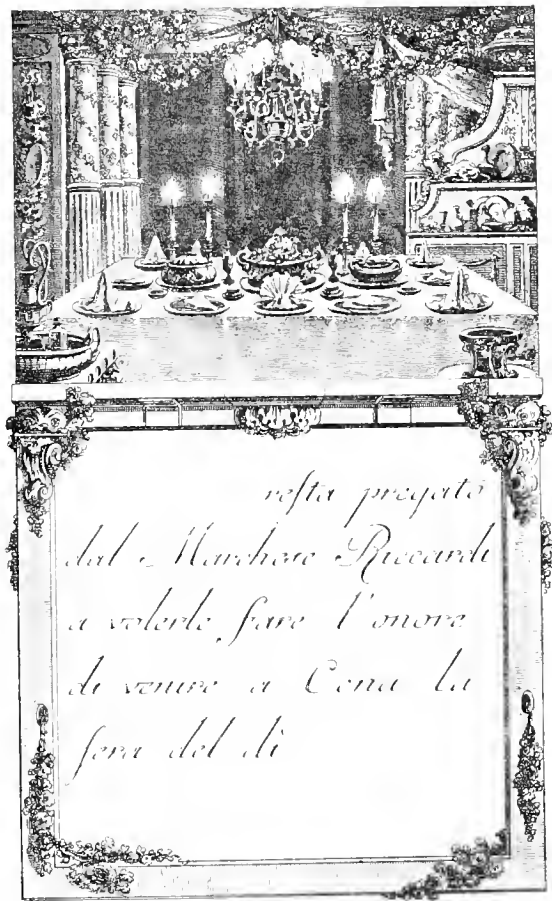 resta pregato
dal Marchese Riccardi
a volerle fare l'onore
di venire a Cena la
sera del dì